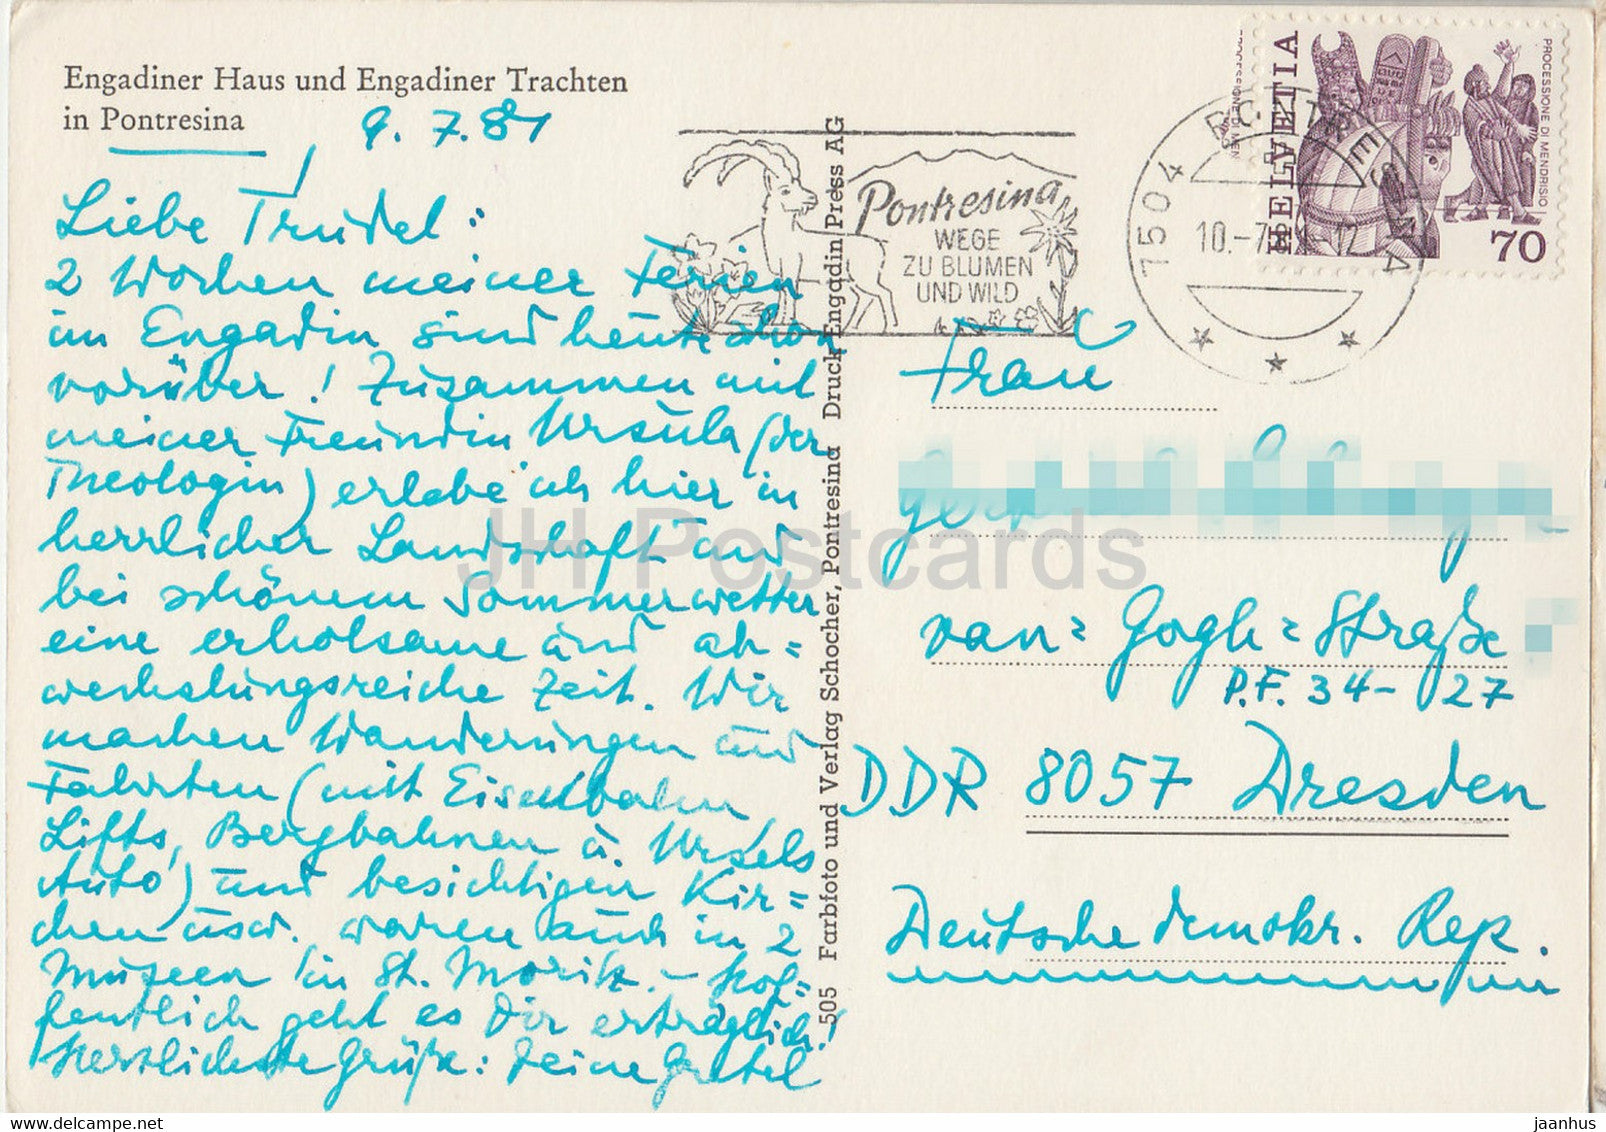 Engadiner Haus und Engadiner Trachten
in Pontresina
9. 7. 81
Liebe Trudel!
2 Wochen meiner Ferien
im Engadin sind heute schon
vorüber! Zusammen mit
meiner Freundin Ursula (der
Theologin) erlabe ich hier in
herrlicher Landschaft und
bei schönem Sommerwetter
eine erholsame und ab=
wechslungsreiche Zeit. Wir
machen Wanderungen und
Fahrten (mit Eisenbahn
Lifts, Bergbahnen u. Ursels
Auto) und besichtigen Kir=
chen usw. waren auch in 2
Museen in St. Moritz. – Hof=
fentlich geht es Dir erträglich!
Herzlichste Grüße: Deine Gretel
505 Farbfoto und Verlag Schocher, Pontresina Druck Engadin Press AG
Pontresina
WEGE
ZU BLUMEN
UND WILD
7504 PONTRESINA
10.-7.81-12
HELVETIA
PROCESSIONE DI MENDRISIO
70
Frau
van=Gogh=Straße
P.F. 34- 27
DDR 8057 Dresden
Deutsche demokr. Rep.
JH Postcards
jaanhus